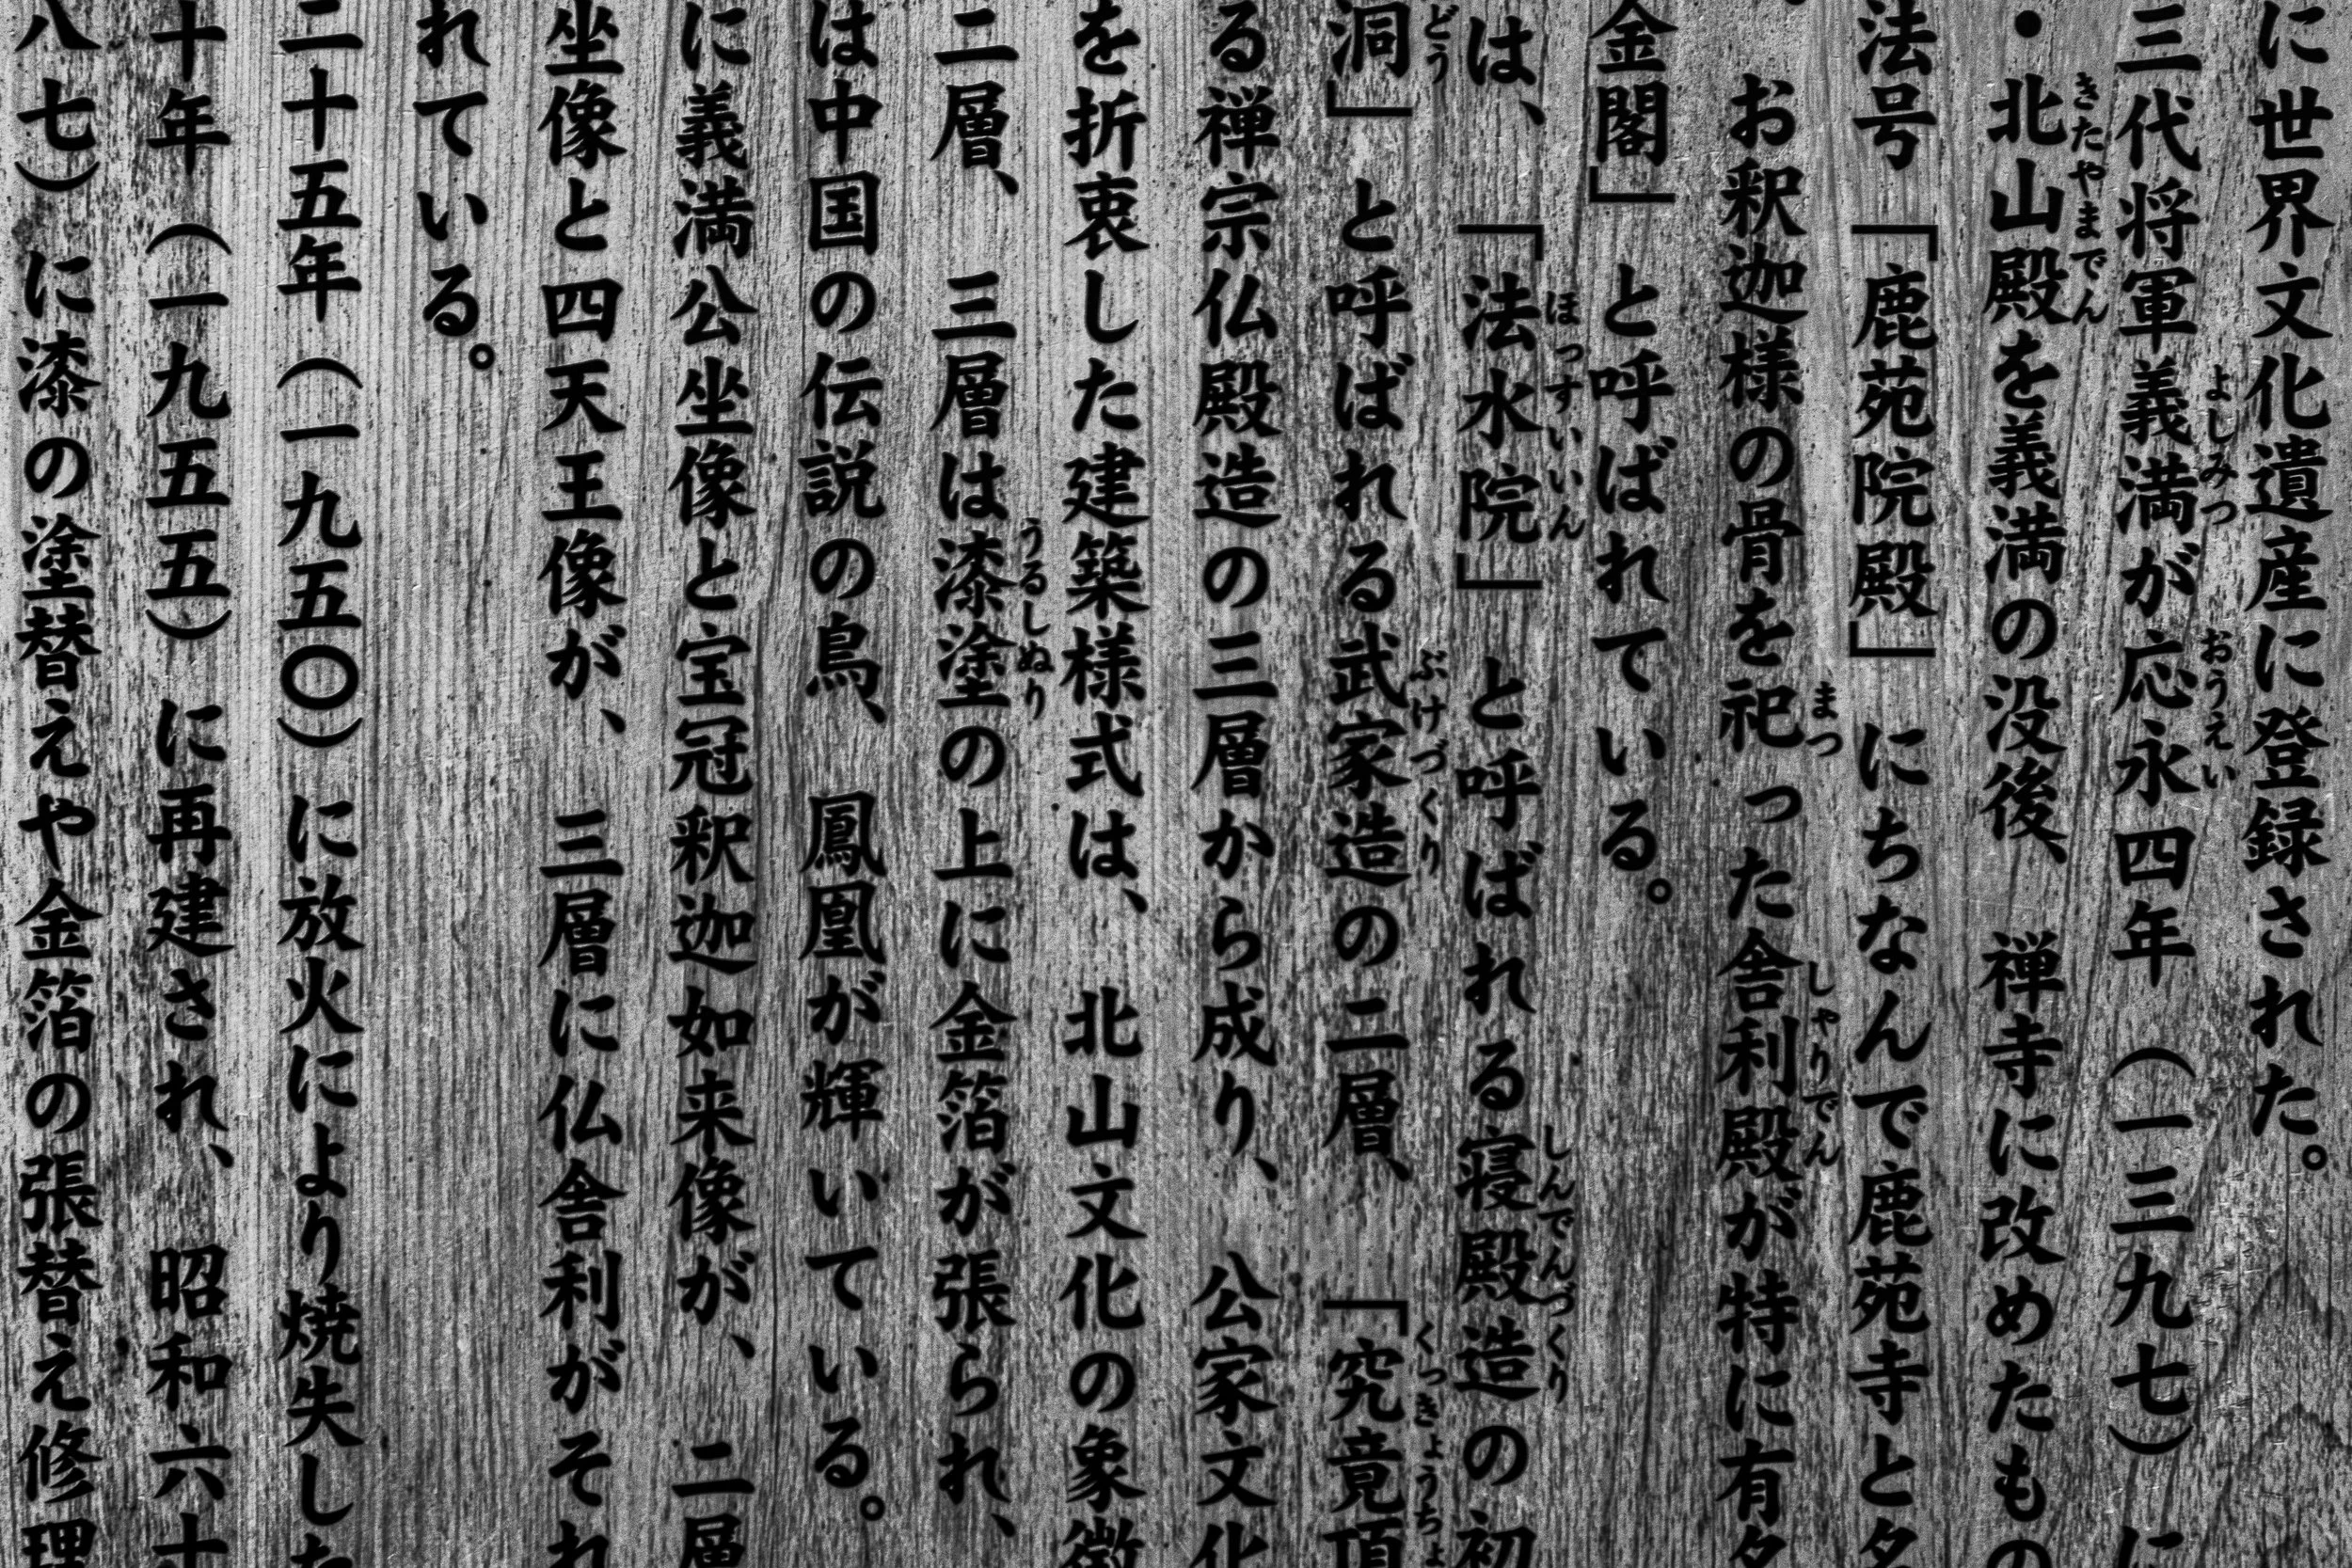 に世界文化遺産に登録された。
三代将軍義満が応永四年（一三九七）に
・北山殿を義満の没後、禅寺に改めたもの
法号「鹿苑院殿」にちなんで鹿苑寺と名
お釈迦様の骨を祀った舎利殿が特に有名
金閣」と呼ばれている。
は、「法水院」と呼ばれる寝殿造の初
洞」と呼ばれる武家造の二層、「究竟頂
る禅宗仏殿造の三層から成り、公家文化
を折衷した建築様式は、北山文化の象徴
二層、三層は漆塗の上に金箔が張られ、
は中国の伝説の鳥、鳳凰が輝いている。
に義満公坐像と宝冠釈迦如来像が、二層
坐像と四天王像が、三層に仏舎利がそれ
れている。
二十五年（一九五〇）に放火により焼失した
十年（一九五五）に再建され、昭和六十
八七）に漆の塗替えや金箔の張替え修理